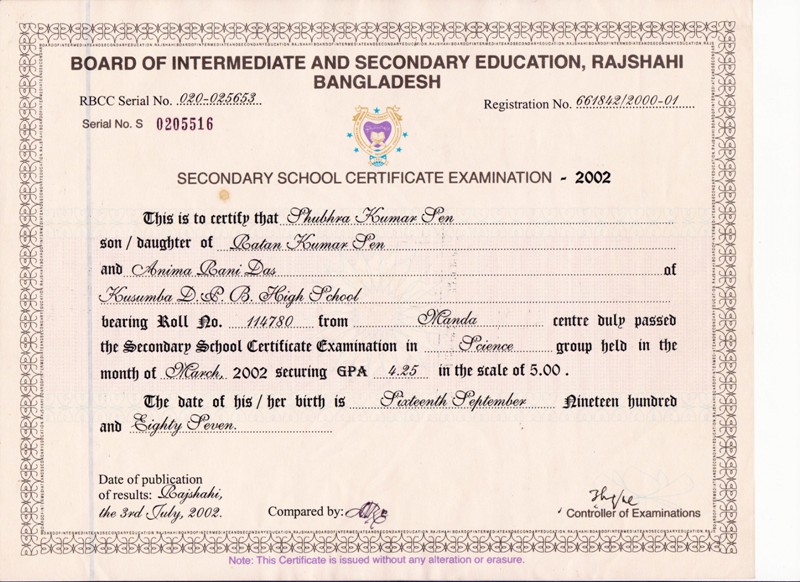 BOARD OF INTERMEDIATE AND SECONDARY EDUCATION, RAJSHAHI
BANGLADESH
RBCC Serial No. 020-025653
Registration No. 661842/2000-01
Serial No. S 0205516
SECONDARY SCHOOL CERTIFICATE EXAMINATION - 2002
This is to certify that Shubhra Kumar Sen
son / daughter of Ratan Kumar Sen
and Anima Rani Das of
Kusumba D. P. B. High School
bearing Roll No. 114780 from Manda centre duly passed
the Secondary School Certificate Examination in Science group held in the
month of March, 2002 securing GPA 4.25 in the scale of 5.00 .
The date of his / her birth is Sixteenth September Nineteen hundred
and Eighty Seven.
Date of publication
of results: Rajshahi,
the 3rd July, 2002.
Compared by:
Controller of Examinations
Note: This Certificate is issued without any alteration or erasure.